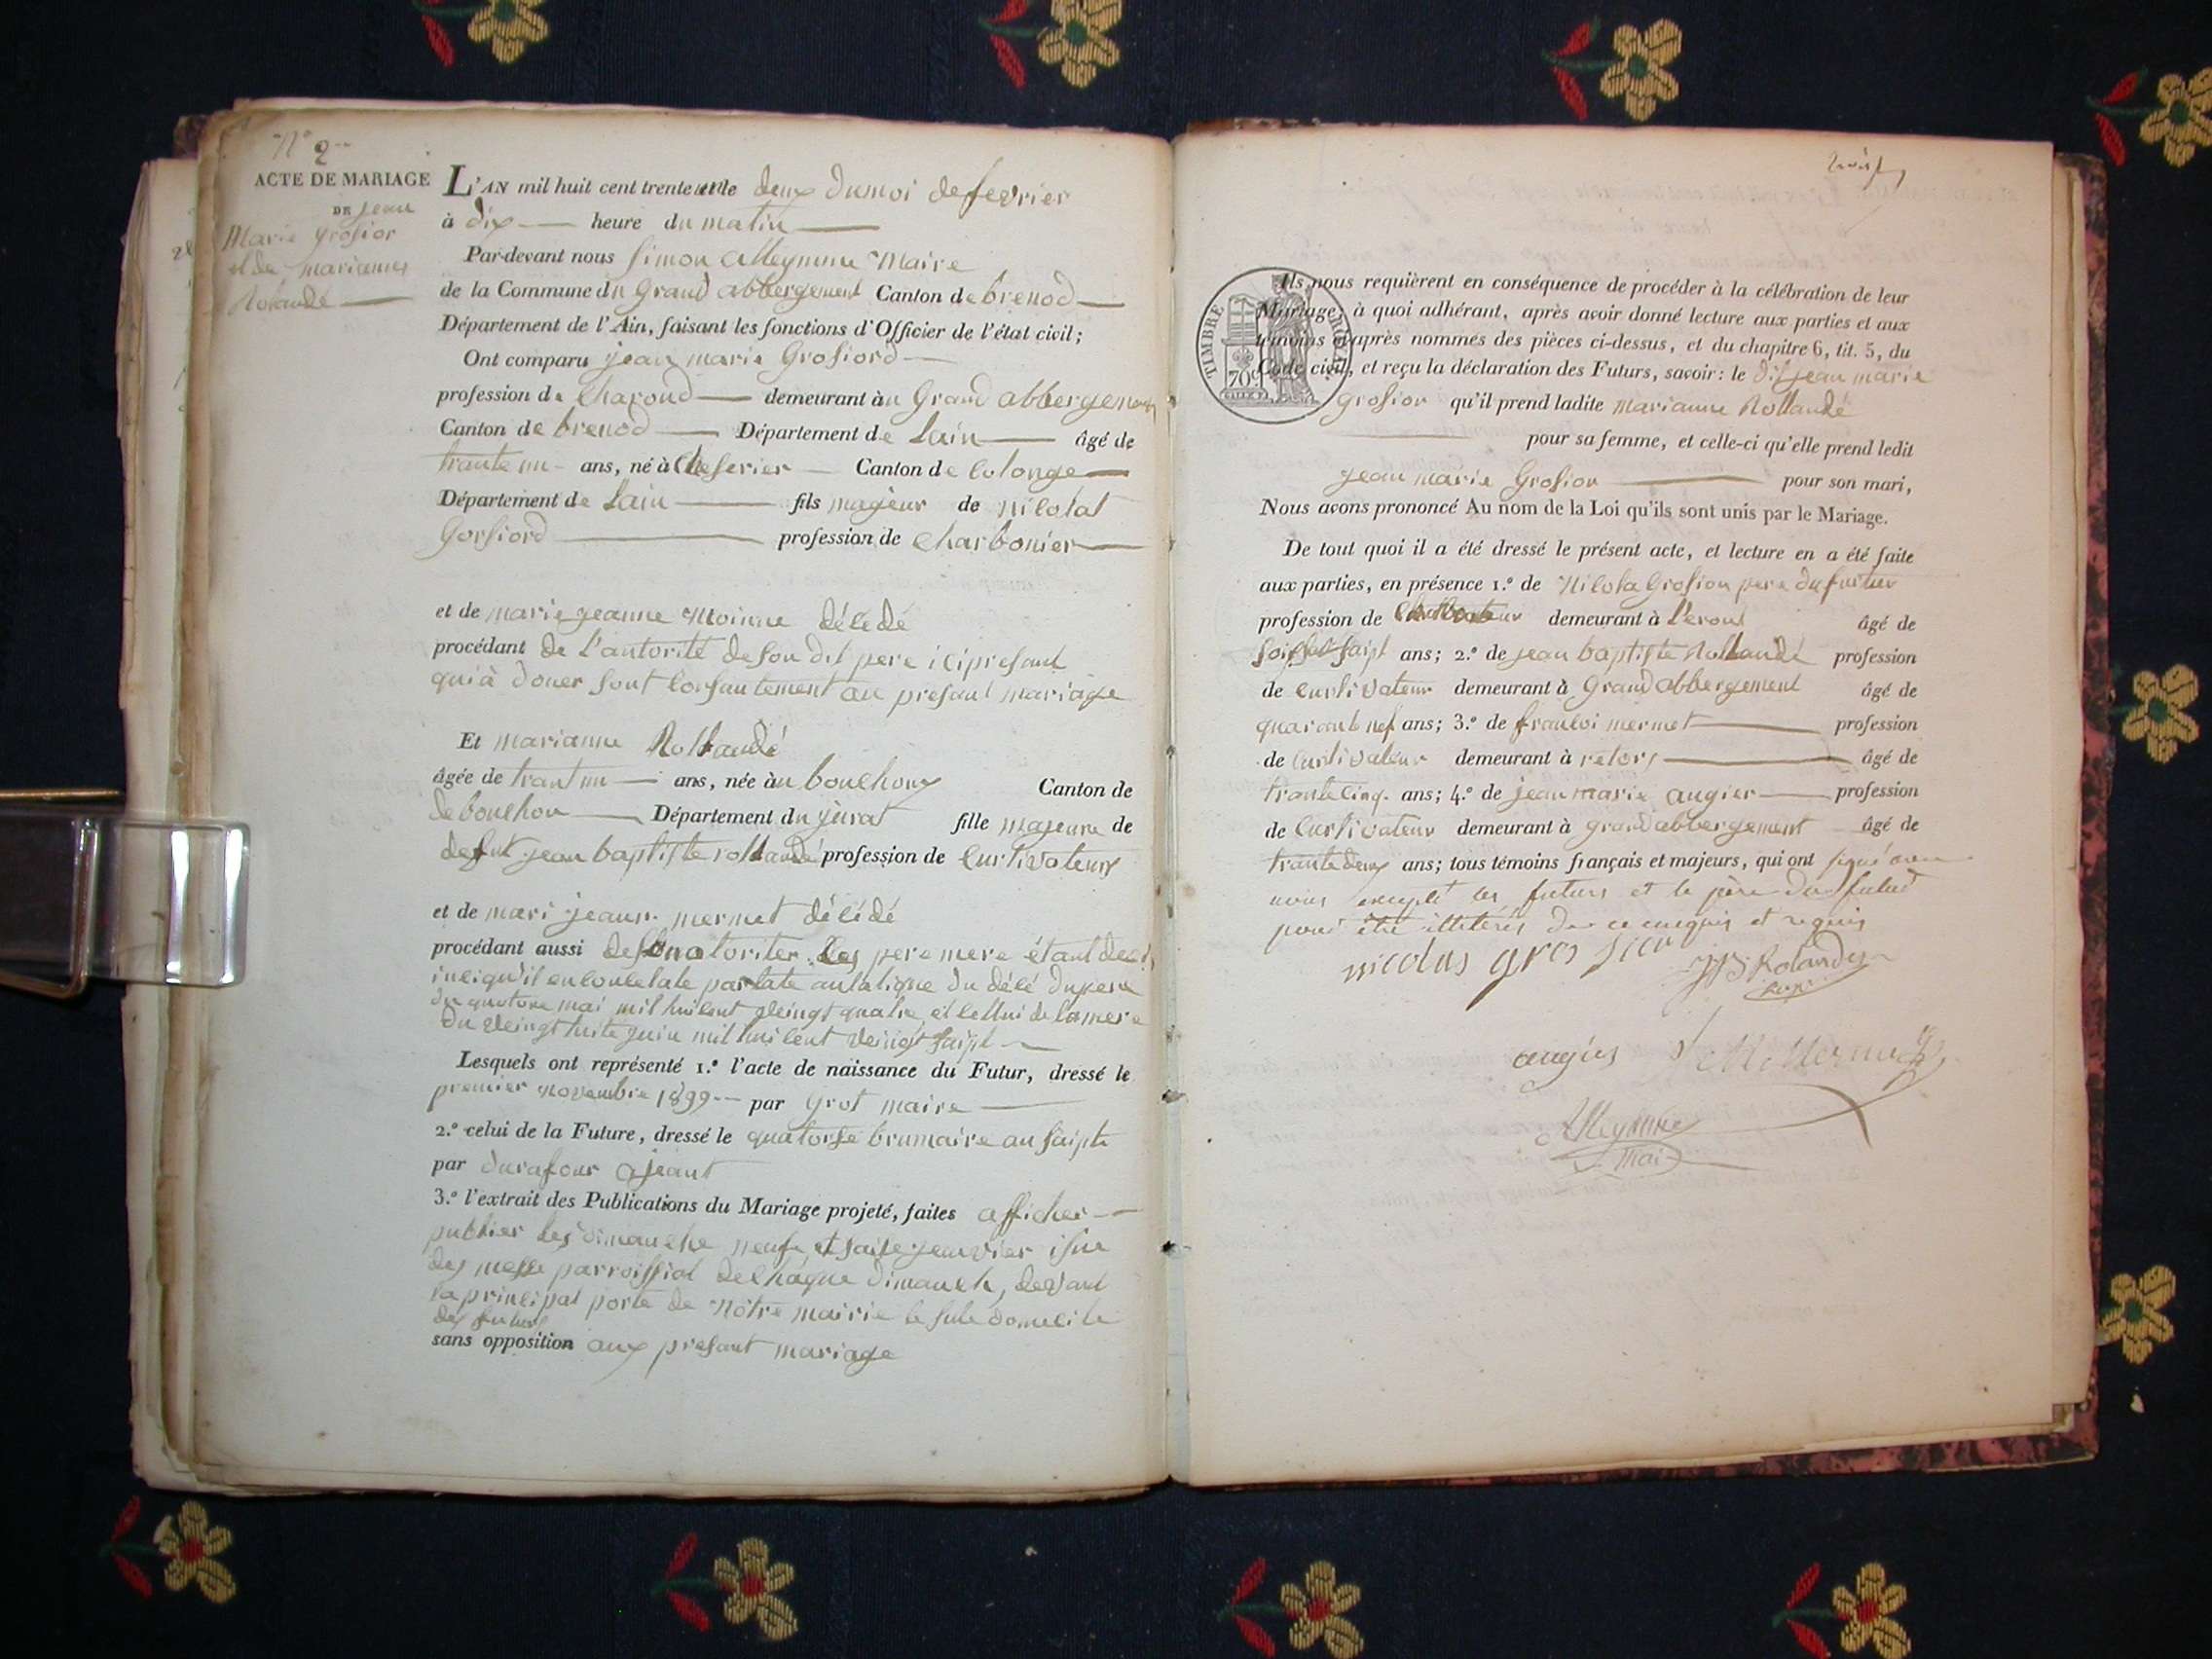 N° 2
ACTE DE MARIAGE
DE jean
Marie grosior
et de marianne
Rolandé
L'AN mil huit cent trente un le deux du moi de fevrier
à dix heure du matin
Par-devant nous Simon alleymme Maire
de la Commune du Grand abbergement Canton de brenod
Département de l'Ain, faisant les fonctions d'Officier de l'état civil;
Ont comparu jean marie Grosiord
profession de Charond demeurant au Grand abbergement
Canton de brenod Département de Lain âgé de
trante un ans, né à Cheserier Canton de Colonge
Département de Lain fils majeur de nicolat
Gorsiord profession de Charbonier
et de marie jeanne Moinne décédé
procédant de l'autorité de son dit pere ici presant
qui à doner sont consantement au presant mariage
Et marianne Rollandé
âgée de trant un ans, née au bouchoux Canton de
de bouchou Département du jurat fille majeure de
defut jean baptiste rollandé profession de Curtivateur
et de mari jeann mermet décédé
procédant aussi de son otoriter Les pere mere étant
insi qu'il en concetate par late autatique du décé du pere
du quatore mai mil huicent vleingt quatre et cellui de la mere
du vleingt huite juin mil huicent veinct saipt
Lesquels ont représenté 1.° l'acte de naissance du Futur, dressé le
premier novembre 1899 par Grot maire
2.° celui de la Future, dressé le quatorse brumaire an saipte
par durafour ajeant
3.° l'extrait des Publications du Mariage projeté, faites afficher
publier les dimanche neufe et saise jeanvier isue
des messe parroissial de chaque dimanch, devant
la principal porte de nôtre mairie le sule domicile
des futurs
sans opposition aux presant mariage
TIMBRE ROYAL
70c
Ils nous requièrent en conséquence de procéder à la célébration de leur
Mariage, à quoi adhérant, après avoir donné lecture aux parties et aux
témoins ci-après nommés des pièces ci-dessus, et du chapitre 6, tit. 5, du
Code civil, et reçu la déclaration des Futurs, savoir: le dit jean marie
Grosior qu'il prend ladite marianne Rollandé
pour sa femme, et celle-ci qu'elle prend ledit
jean marie Grosior pour son mari,
Nous avons prononcé Au nom de la Loi qu'ils sont unis par le Mariage.
De tout quoi il a été dressé le présent acte, et lecture en a été faite
aux parties, en présence 1.° de Nicola Grosion pere du futur
profession de demeurant à âgé de
ans; 2.° de jean baptiste Rollandé profession
de curtivateur demeurant à Grand abbergement âgé de
quarant nef ans; 3.° de francoi mermet profession
de Curtivateur demeurant à retors âgé de
trante cinq ans; 4.° de jean marie augier profession
de Curtivateur demeurant à grand abbergement âgé de
trante deux ans; tous témoins français et majeurs, qui ont signé avec
nous excepté les futurs et le père du futur
pour être illetérés de ce enquis et requis
nicolas gros sior JB Rolandez
augier
Alleymme
mai